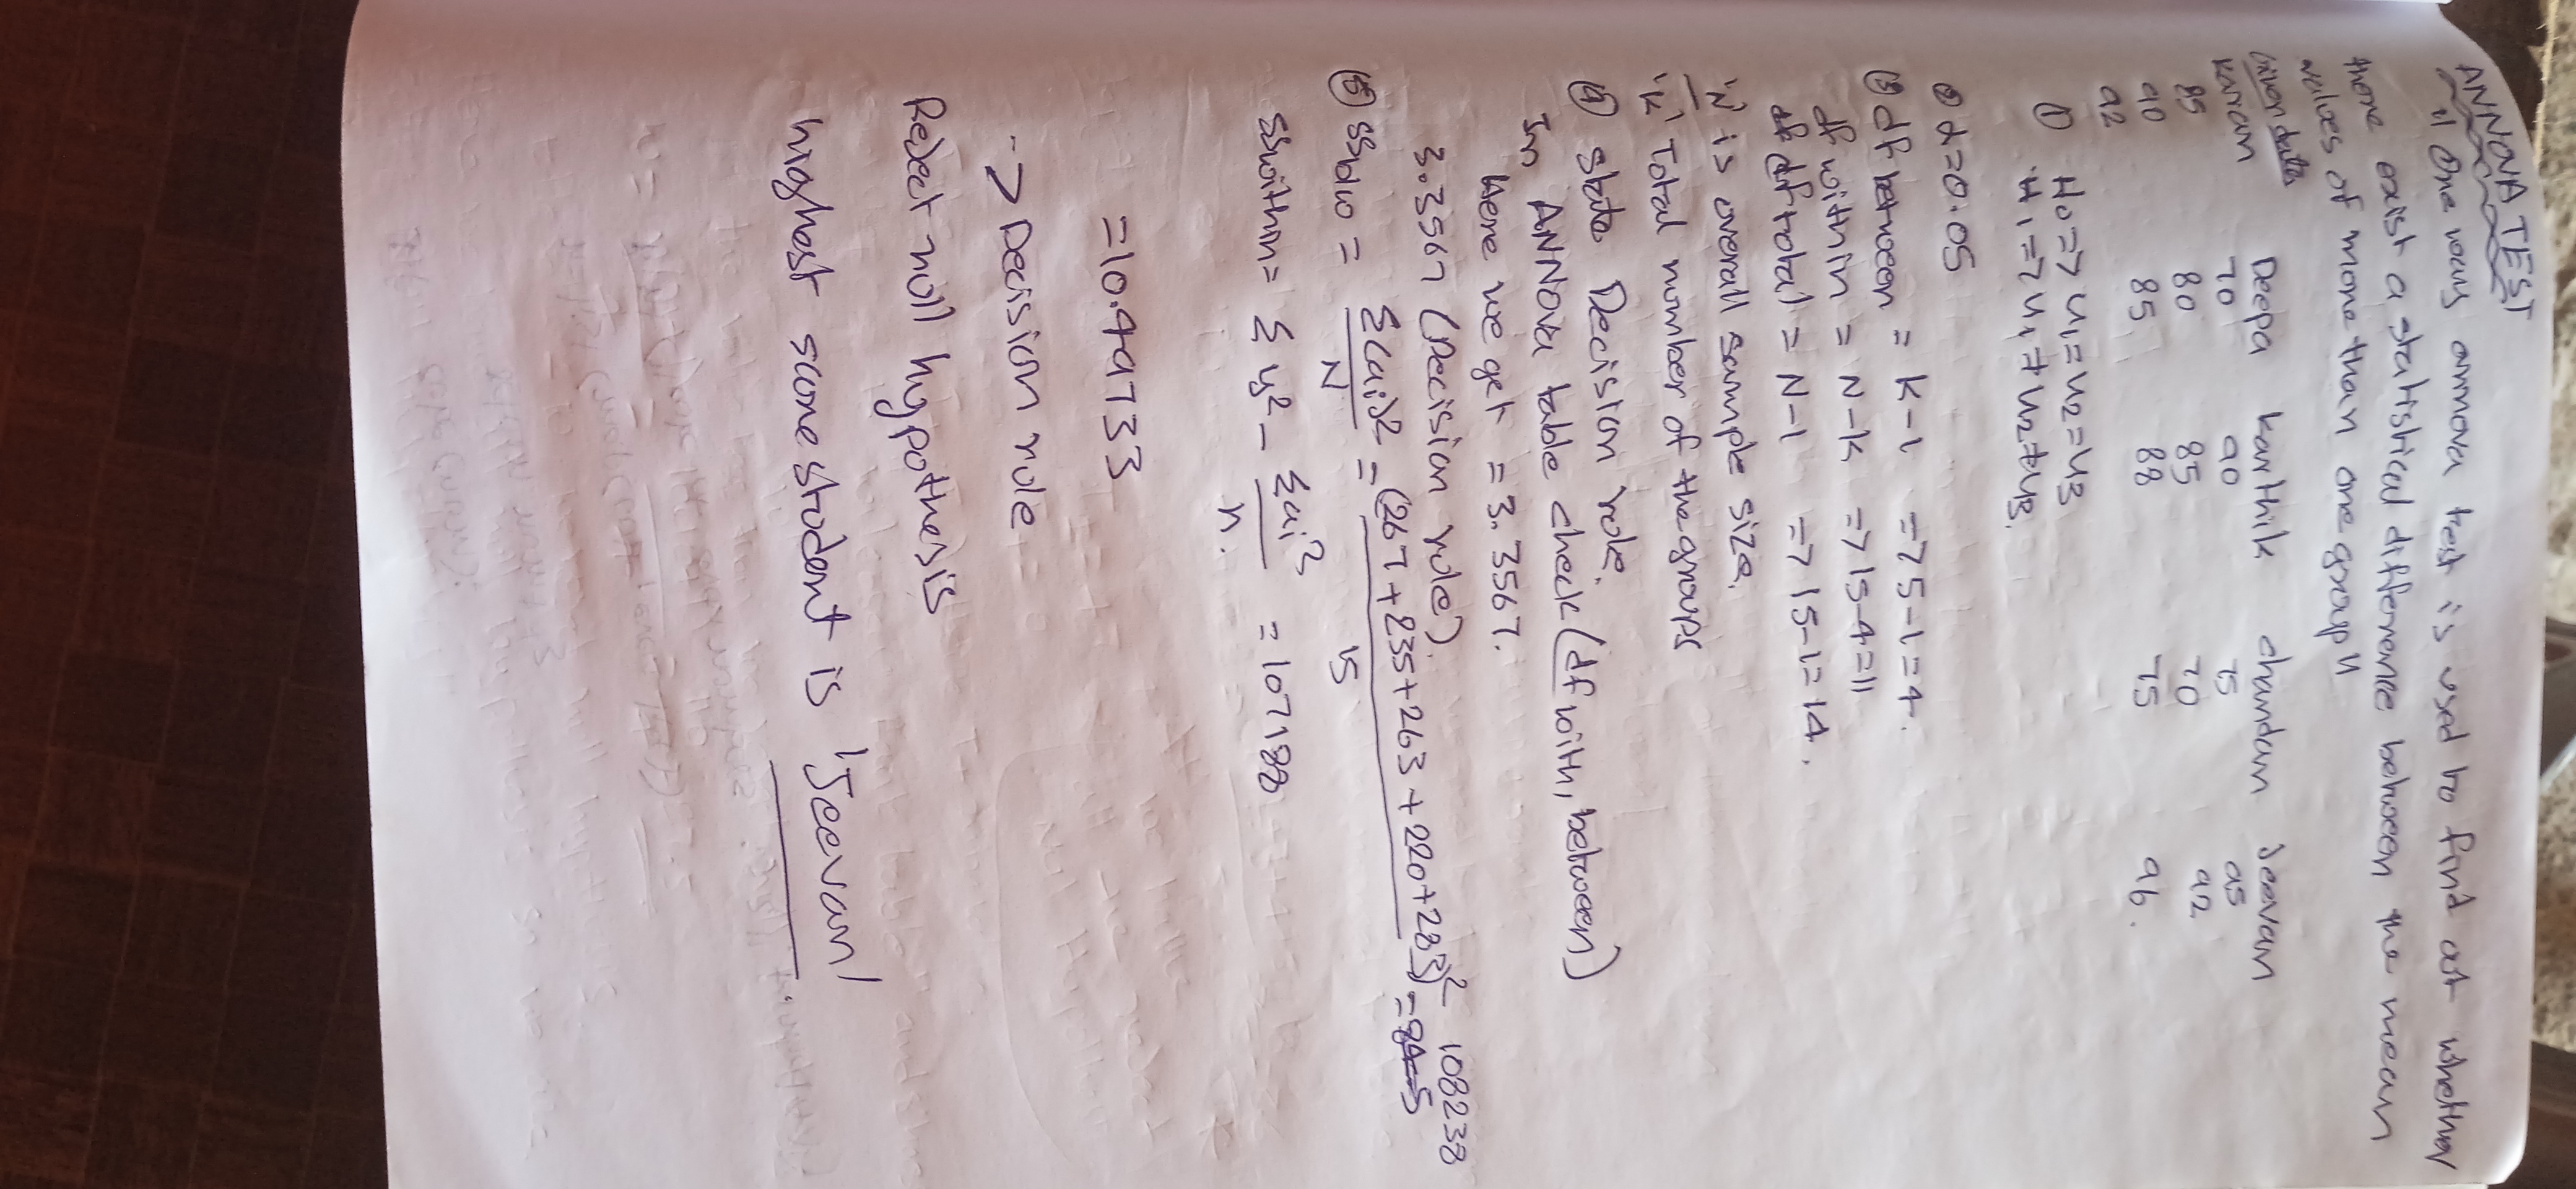 ANNOVA TEST
"One way annova test is used to find out whether
there exist a statistical difference between the mean
values of more than one group"
Given data
Karan Deepa Karthik chandan Jeevan
85 70 90 75 95
90 80 85 70 92
92 85 88 75 96.
① H0 => μ1 = μ2 = μ3
H1 => μ1 ≠ μ2 ≠ μ3.
② α = 0.05
③ df between = K-1 => 5-1 = 4.
df within = N-K => 15-4 = 11
df total = N-1 => 15-1 = 14.
'N' is overall sample size.
'K' Total number of the groups
④ State Decision rule.
Inn ANNOVA table check (df with, between)
Here we get = 3.3567.
3.3567 (Decision rule)
⑤ = Σ(ai)² / N = (267 + 235 + 263 + 220 + 283)² / 15 = 108238
SSwithin = Σy² - Σai² / n. = 107188
= 10.49733
-> Decision rule
Reject null hypothesis
highest score student is 'Jeevan'